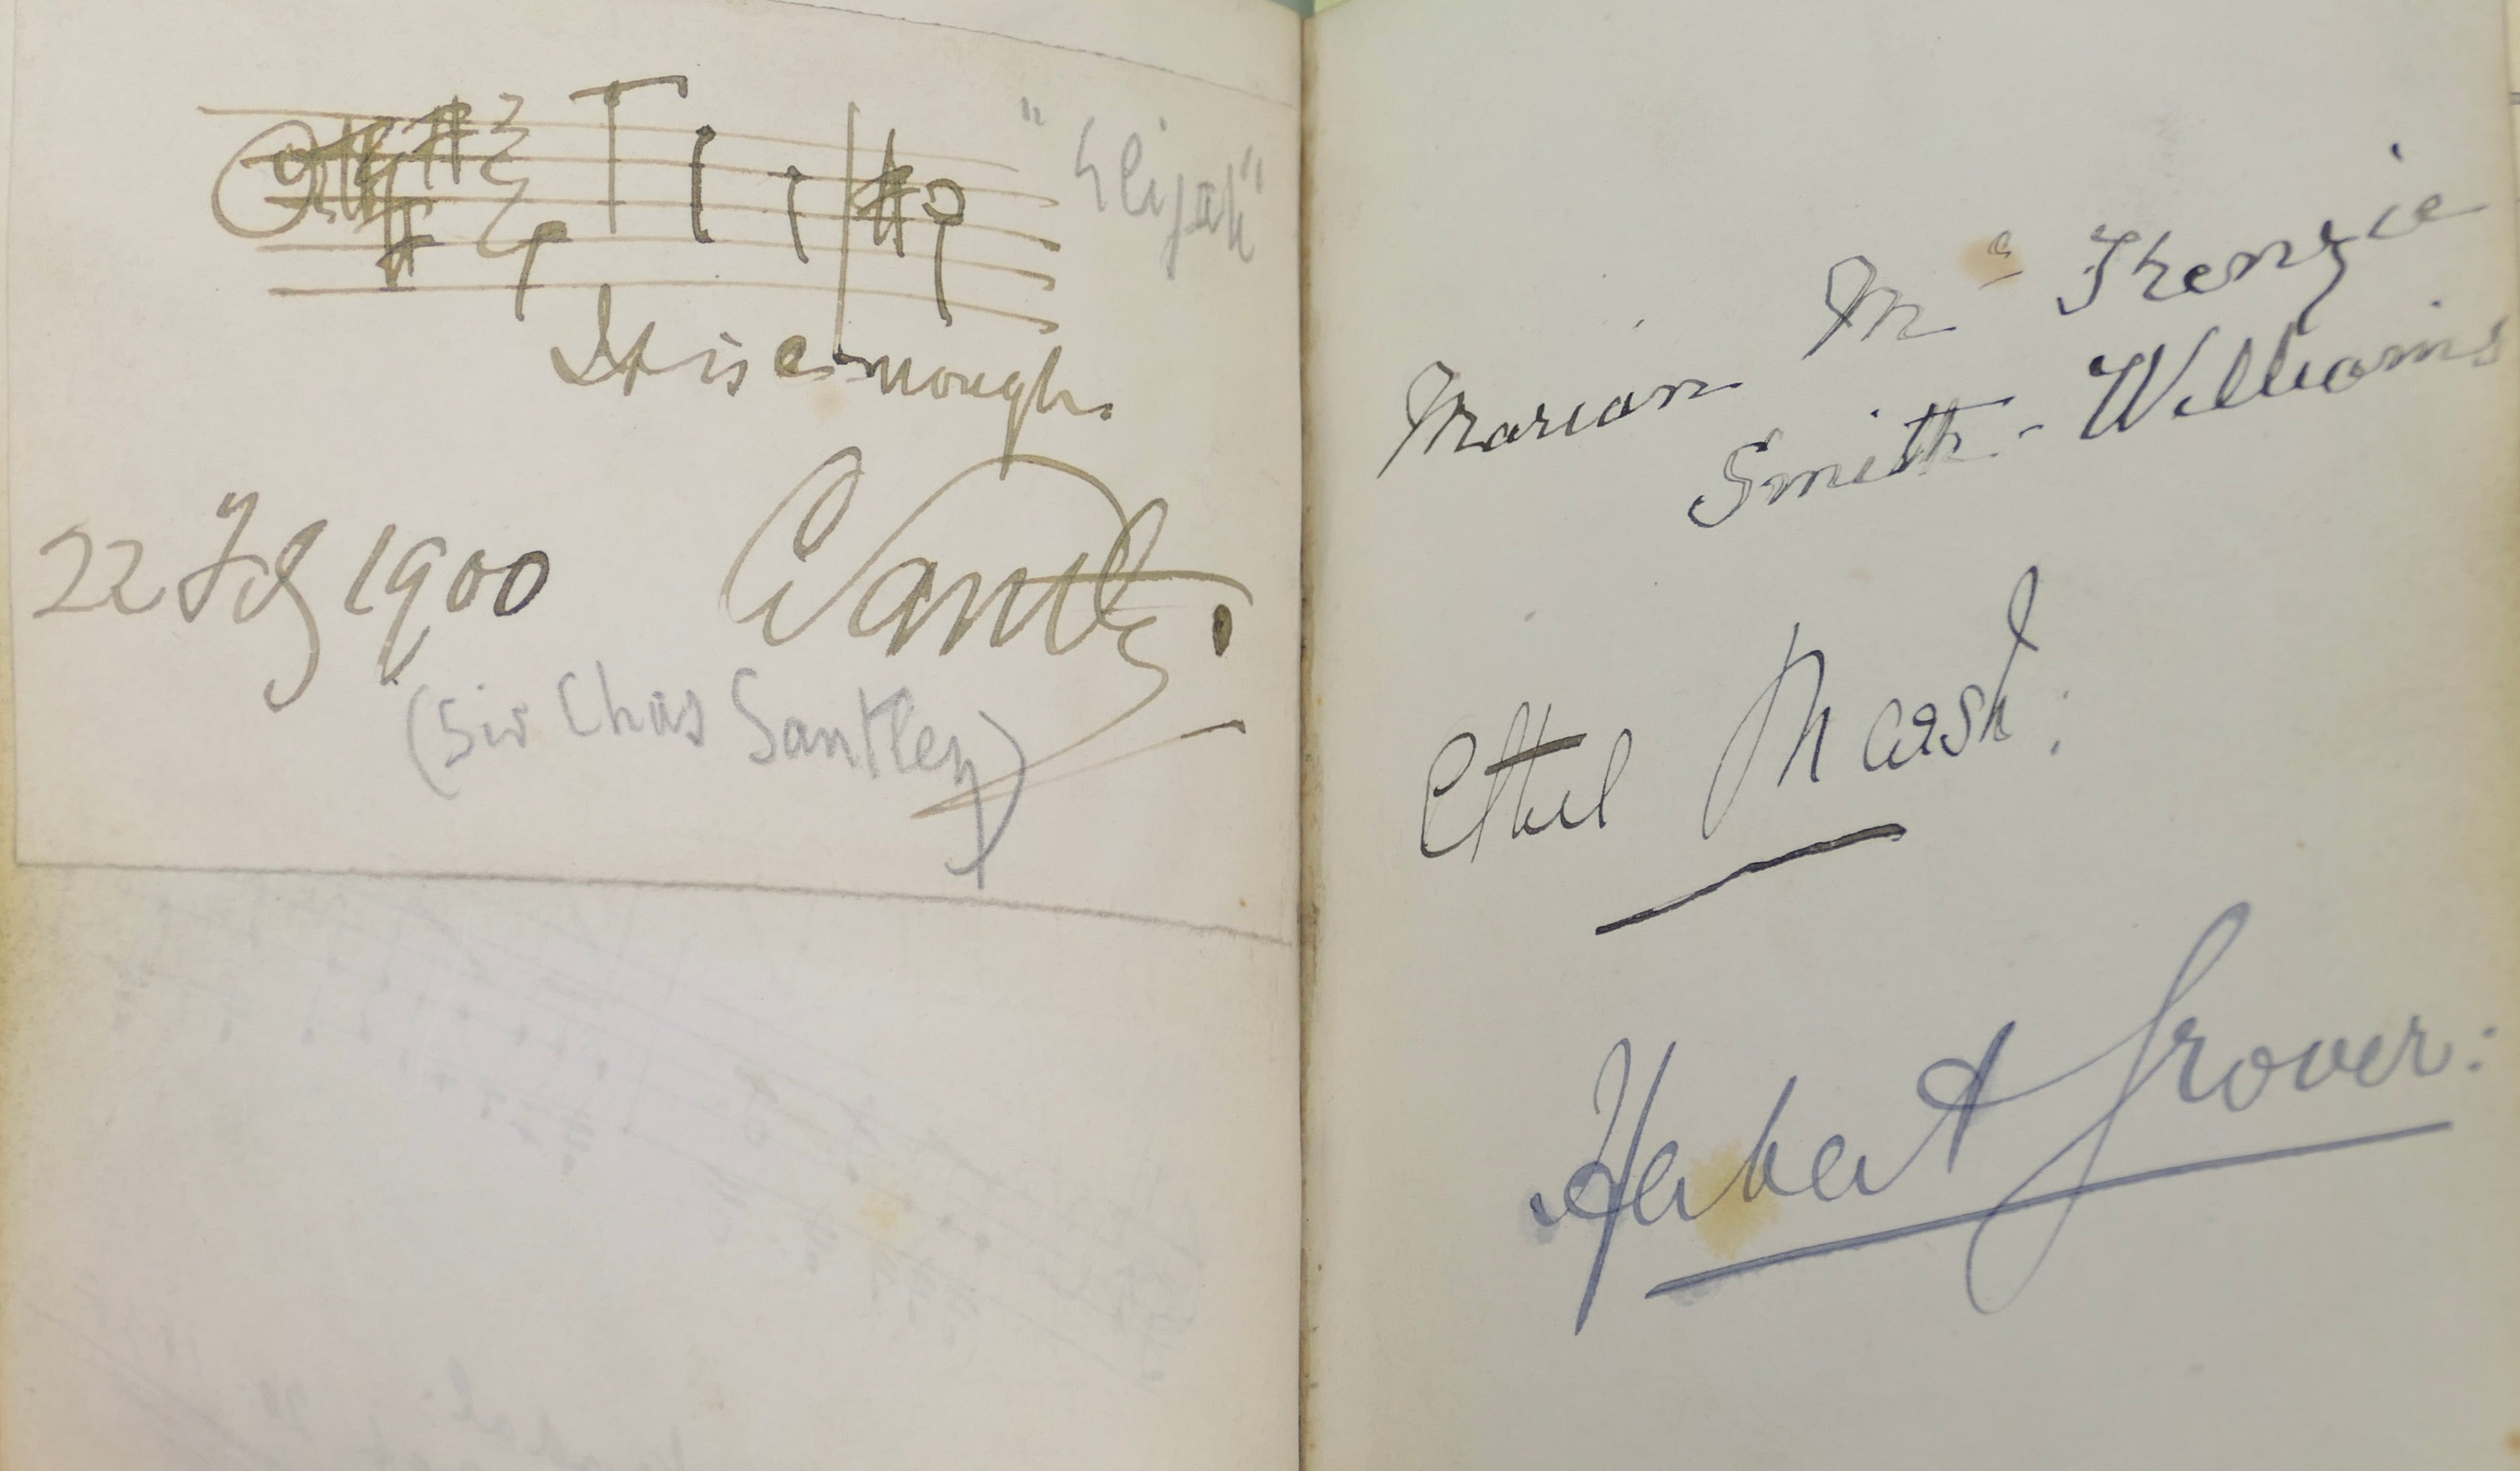 "Elijah"
It is enough.
22 Feb 1900 C Santley.
(Sir Chas Santley)
Marian McKenzie
Smith-Williams
Ethel Marsh.
Herbert Grover: